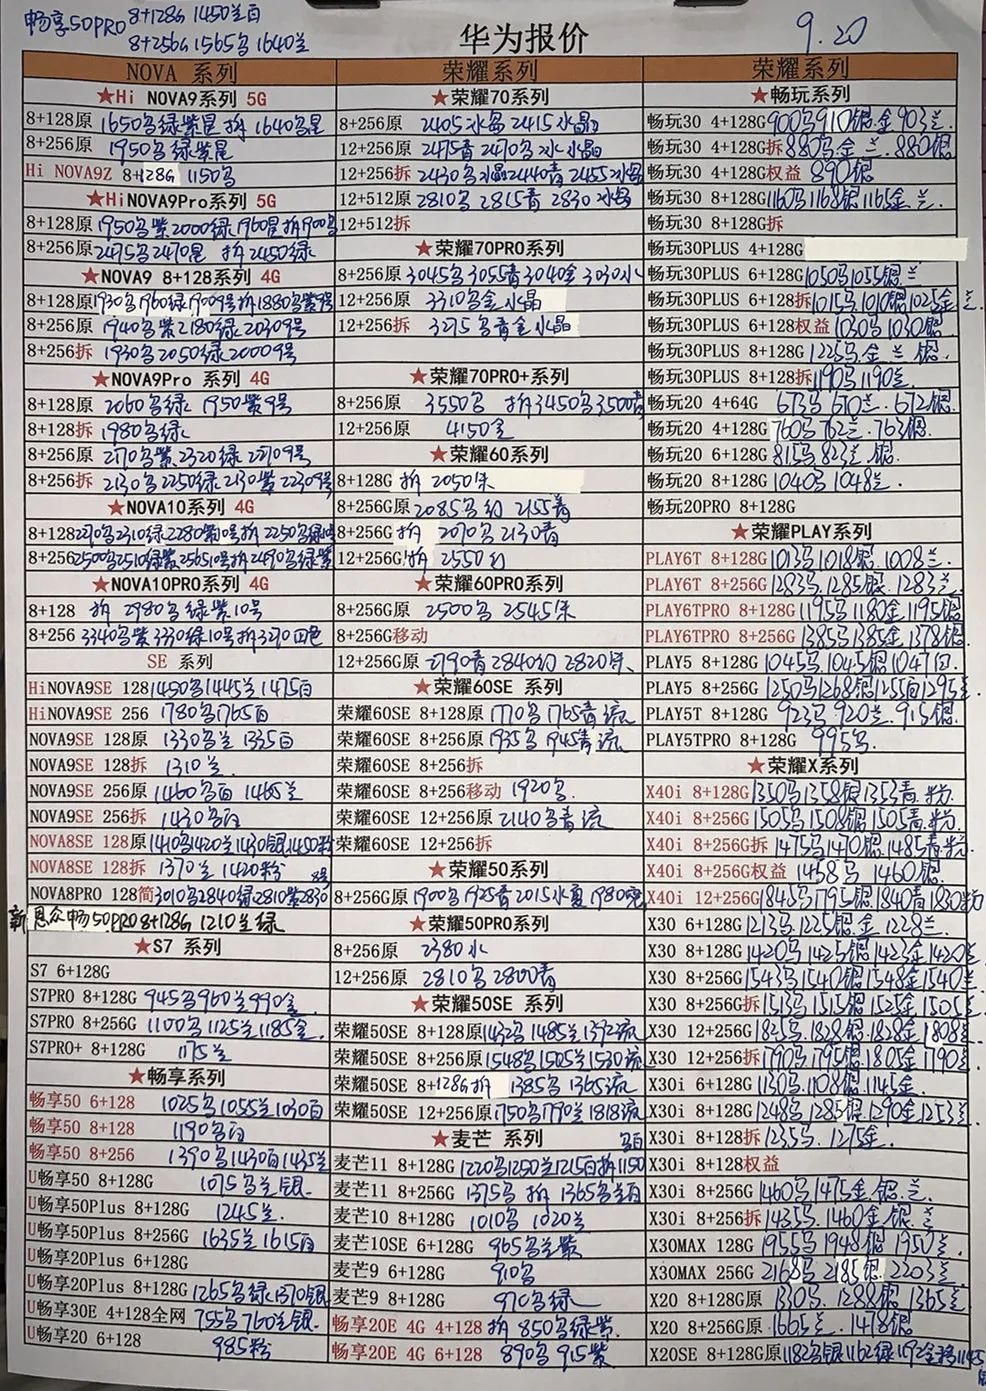 畅享50PRO 8+128G 1450兰白
8+256G 1565乌 1640兰
华为报价
9.20
NOVA 系列
★Hi NOVA9系列 5G
8+128原 1650乌绿紫星 拆 1640乌星
8+256原 1950乌绿紫星
Hi NOVA9Z 8+128G 1150乌
★HiNOVA9Pro系列 5G
8+128原 1950乌紫2000绿1960星拆1900乌
8+256原 2475乌2470星 拆2450绿
★NOVA9 8+128系列 4G
8+128原 1930乌1960绿19009号拆1880乌紫9号
8+256原 1940乌紫2180绿20309号
8+256拆 1930乌2050绿20009号
★NOVA9Pro 系列 4G
8+128原 2060乌绿 1950紫9号
8+128拆 1980乌绿
8+256原 2270乌紫2320绿22709号
8+256拆 2130乌2250绿2130紫22309号
★NOVA10系列 4G
8+128
8+256
★NOVA10PRO系列 4G
8+128 拆 2980乌绿紫10号
8+256 3340乌紫3330绿10号拆3270四色
SE 系列
HiNOVA9SE 128 1450乌1445兰1475白
HiNOVA9SE 256 1780乌1765白
NOVA9SE 128原 1330乌兰 1335白
NOVA9SE 128拆 1310兰
NOVA9SE 256原 1460乌白 1465兰
NOVA9SE 256拆 1430乌白
NOVA8SE 128原 1410乌1420兰1430银1450粉
NOVA8SE 128拆 1370兰 1420粉
NOVA8PRO 128简 3010乌2840绿2810紫2830 8号
新 恩众畅50PRO 8+128G 1210兰绿
★S7 系列
S7 6+128G
S7PRO 8+128G 945乌960兰990金
S7PRO 8+256G 1100乌1125兰1185金
S7PRO+ 8+128G 1175兰
★畅享系列
畅享50 6+128 1025乌1055兰1030白
畅享50 8+128 1190乌白
畅享50 8+256 1390乌1430白1435兰
U畅享50 8+128G 1075乌兰银
U畅享50Plus 8+128G 1245兰
U畅享50Plus 8+256G 1635兰1615白
U畅享20Plus 6+128G
U畅享20Plus 8+128G 1265乌绿1370银
U畅享30E 4+128全网 755乌760兰银
U畅享20 6+128 985粉
荣耀系列
★荣耀70系列
8+256原 2405冰乌 2415水晶
12+256原 2475青 2470乌冰水晶
12+256拆 2430乌水晶2440青
12+512原 2810乌 2815青 2830冰
12+512拆
★荣耀70PRO系列
8+256原 3045乌3055青3040金3030冰
12+256原 3310乌金水晶
12+256拆 3275乌青金水晶
★荣耀70PRO+系列
8+256原 3550乌 拆3450乌3500青
12+256原 4150金
★荣耀60系列
8+128G 拆 2050朱
8+256G原 2085乌幻 2155青
8+256G 拆 2070乌2130青
12+256G 拆 2550幻
★荣耀60PRO系列
8+256G原 2500乌 2545朱
8+256G移动
12+256G原 2790青2840幻2820朱
★荣耀60SE 系列
荣耀60SE 8+128原 1770乌 1765青流
荣耀60SE 8+256原 1935乌 1945青流
荣耀60SE 8+256拆
荣耀60SE 8+256移动 1920乌
荣耀60SE 12+256原 2140乌青流
荣耀60SE 12+256拆
★荣耀50系列
8+256G原 1900乌1925青2015水夏1980亮
★荣耀50PRO系列
8+256原 2380水
12+256原 2810乌2800青
★荣耀50SE 系列
荣耀50SE 8+128原 1432乌1485兰1392流
荣耀50SE 8+256原 1548乌1585兰1530流
荣耀50SE 8+128G拆 1385乌1365流
荣耀50SE 12+256原 1750乌1790兰1818流
★麦芒 系列
麦芒11 8+128G 1220乌1250兰1215白拆1150乌白
麦芒11 8+256G 1375乌 拆 1365乌兰白
麦芒10 8+128G 1010乌 1020兰
麦芒10SE 6+128G 965乌兰紫
麦芒9 6+128G 910乌
麦芒9 8+128G 970乌绿
畅享20E 4G 4+128 拆 850乌绿紫
畅享20E 4G 6+128 890乌 915紫
荣耀系列
★畅玩系列
畅玩30 4+128G 900乌910银.金903兰
畅玩30 4+128G拆 880乌金兰.880银
畅玩30 4+128G权益 890银
畅玩30 8+128G 1160乌1168银1165金兰
畅玩30 8+128G拆
畅玩30PLUS 4+128G
畅玩30PLUS 6+128G 1050乌1055银兰
畅玩30PLUS 6+128拆 1015乌1010银1025金兰
畅玩30PLUS 6+128权益 1030乌1030银
畅玩30PLUS 8+128G 1225乌.金兰银
畅玩30PLUS 8+128拆 1190乌1190兰
畅玩20 4+64G 673乌670兰.672银
畅玩20 4+128G 760乌762兰.763银
畅玩20 6+128G 815乌823兰.银
畅玩20 8+128G 1040乌1048兰
畅玩20PRO 8+128G
★荣耀PLAY系列
PLAY6T 8+128G 1013乌1018银.1008兰
PLAY6T 8+256G 1283乌.1285银.1283兰
PLAY6TPRO 8+128G 1195乌1180金1195银
PLAY6TPRO 8+256G 1385乌1385金.1378银
PLAY5 8+128G 1045乌.1045银1047白
PLAY5 8+256G 1250乌1268银1255白1295兰
PLAY5T 8+128G 923乌.920兰.915银
PLAY5TPRO 8+128G 995乌
★荣耀X系列
X40i 8+128G 1350乌1358银1353青.粉
X40i 8+256G 1505乌1508银1505青.粉
X40i 8+256G拆 1475乌1470银1485青粉
X40i 8+256G权益 1458乌1460银
X40i 12+256G 1845乌1795银1840青1830粉
X30 6+128G 1213乌1225银.金1228兰
X30 8+128G 1420乌1425银1423金1420兰
X30 8+256G 1543乌1540银1548金1540兰
X30 8+256G拆 1513乌1515银1525金1505兰
X30 12+256G 1825乌1828银1828金1808兰
X30 12+256拆 1790乌1795银1805金1790兰
X30i 6+128G 1130乌1108银1145金
X30i 8+128G 1248乌1285银1290金1253兰
X30i 8+128拆 1235乌.1275金
X30i 8+128权益
X30i 8+256G 1460乌1475金.银.兰
X30i 8+256拆 1435乌.1460金.银.兰
X30MAX 128G 1955乌1948银1950兰
X30MAX 256G 2168乌2185银.2203兰
X20 8+128G原 1330乌.1288银1365兰
X20 8+256G原 1665兰.1478银
X20SE 8+128G原 1182乌银1162绿1192金